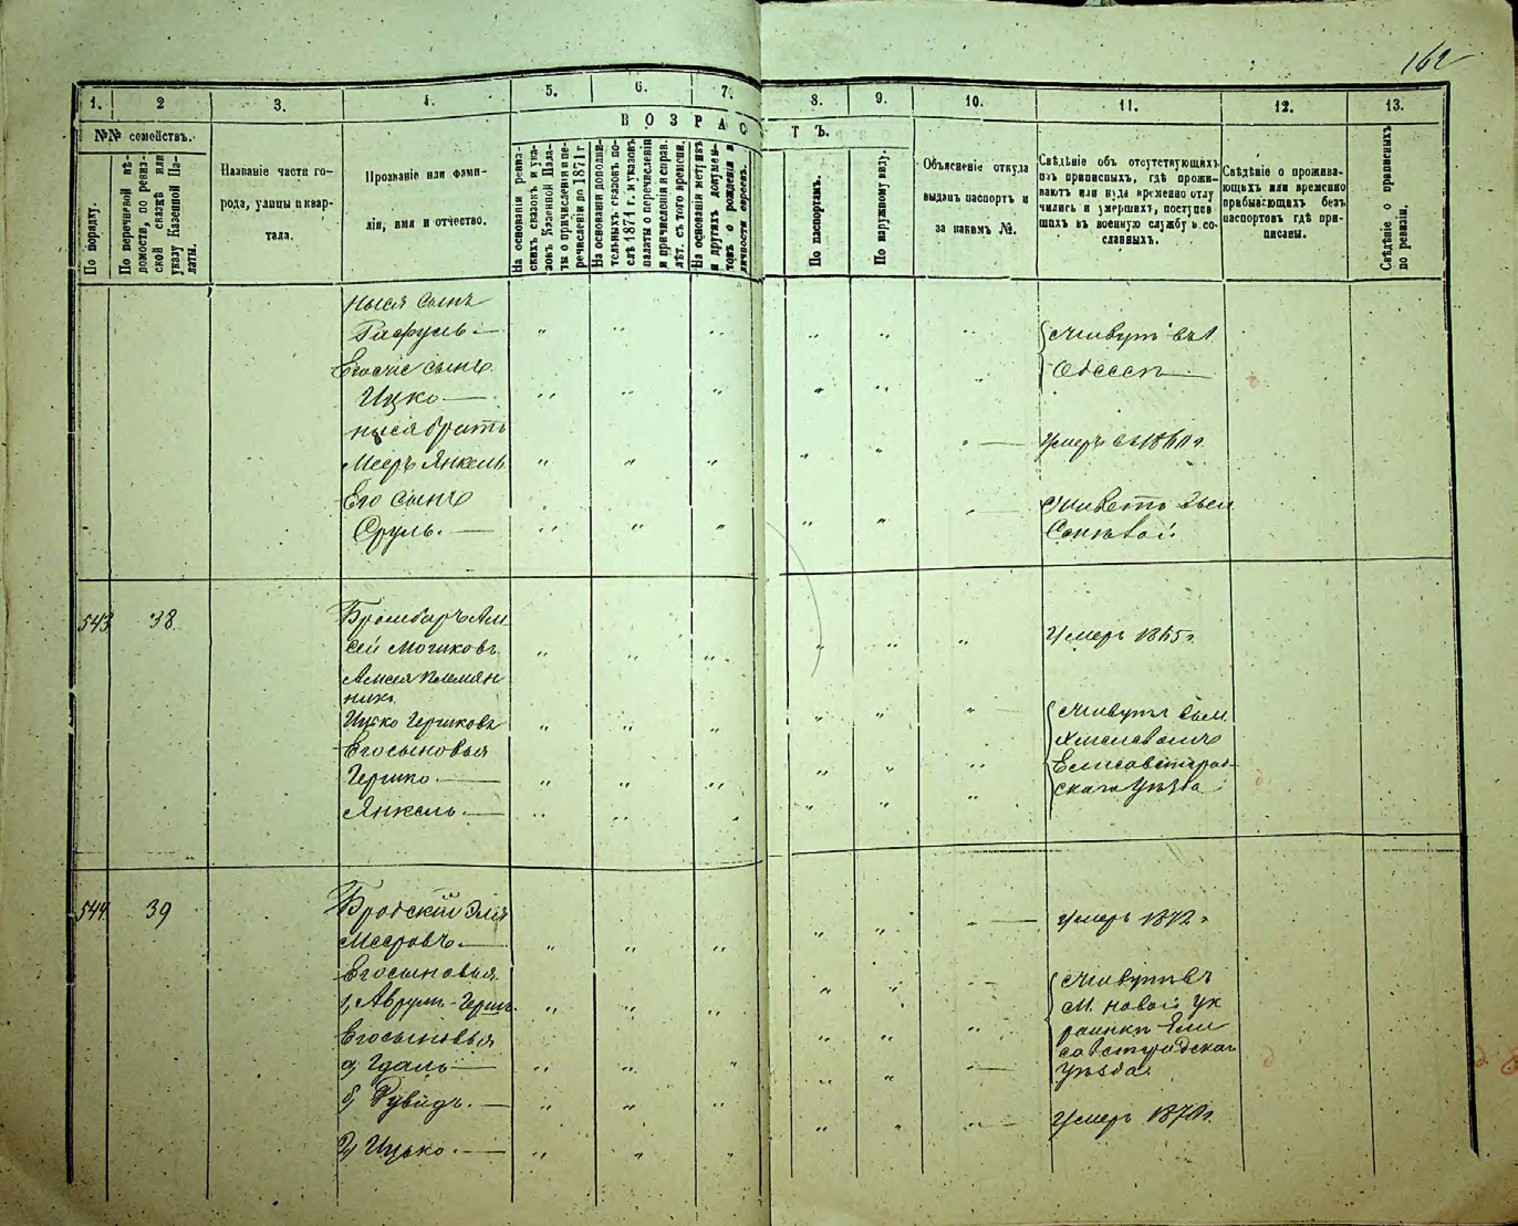 162
1. 2 3. 4. 5. 6. 7. 8. 9. 10. 11. 12. 13.
ВОЗРАСТЪ.
№№ семействъ.
По порядку.
По перечневой вѣдомости, по ревизской сказкѣ или указу Казенной Палаты.
Названіе части города, улицы и квартала.
Прозваніе или фамилія, имя и отчество.
На основаніи ревизскихъ сказокъ и указовъ Казенной Палаты о причисленіи и перечисленіи до 1871 г.
На основаніи дополнительныхъ сказокъ послѣ 1871 г. и указовъ палаты о перечисленіи и причисленіи и справ. лѣт. съ того времени.
На основаніи метрикъ и другихъ документовъ о рожденіи и личности евреевъ.
По паспортамъ.
По наружному виду.
Объясненіе откуда выданъ паспортъ и за какимъ №.
Свѣдѣніе объ отсутствующихъ изъ приписныхъ, гдѣ проживаютъ или куда временно отлучились и умершихъ, поступившихъ въ военную службу и сосланныхъ.
Свѣдѣніе о проживающихъ или временно пребывающихъ безъ паспортовъ гдѣ приписаны.
Свѣдѣніе о приписныхъ по ревизіи.
Нысія сынъ
Рафуль —
Живутъ въ г.
Его сынъ
Одессѣ
Ицко —
Нысія братъ
Умеръ въ 1860 г.
Мееръ Янкель
Его сынъ
Живетъ въ м
Сруль. —
543 38
Бромбаръ Ам
сей Мошковъ
Умеръ 1865 г.
Амсея племян
никъ
Ицко Гершковъ
Живутъ въ м.
Его сыновья
Хмелевомъ
Гершко. —
Елисаветград
скаго Уѣзда
Янкель. —
544 39
Бродскій Эля
Умеръ 1872 г
Мееровъ. —
Его сыновья
Живутъ въ
1, Аврумъ-Герш.
м. Новой Ук
Его сыновья
раинкѣ Ели
саветградскаго
а, Гдаль —
Уѣзда.
б, Рувидъ. —
Умеръ 1870 г.
2, Ицько. —